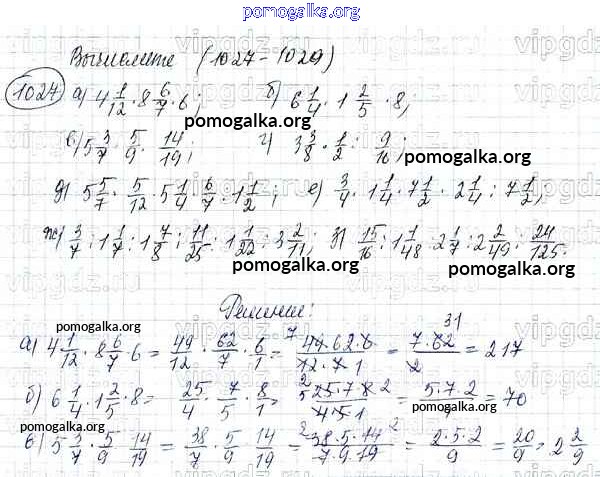 pomogalka.org
Вычислите (1027-1029)
1027 а) 4 1/12 · 8 6/7 · 6; б) 6 1/4 · 1 2/5 · 8;
pomogalka.org
в) 5 3/7 · 5/9 · 14/19; г) 3 3/8 · 1/2 : 9/16;
pomogalka.org
д) 5 5/7 · 5/12 · 5 1/4 · 6/7 · 1 1/2; е) 3/4 · 1 1/4 · 7 1/2 · 2 1/4 : 7 1/2,
ж) 3/7 : 1 1/7 : 1 7/8 : 11/25 : 1 1/22 : 3 2/11; з) 15/16 : 1 1/48 · 2 1/7 : 2 2/49 : 24/125.
pomogalka.org pomogalka.org
Решение:
pomogalka.org
а) 4 1/12 · 8 6/7 · 6 = 49/12 · 62/7 · 6/1 = 49·62·6/12·7·1 = 7·62/2 = 217
б) 6 1/4 · 1 2/5 · 8 = 25/4 · 7/5 · 8/1 = 25·7·8/4·5·1 = 5·7·2/1 = 70
pomogalka.org pomogalka.org
в) 5 3/7 · 5/9 · 14/19 = 38/7 · 5/9 · 14/19 = 38·5·14/7·9·19 = 2·5·2/9 = 20/9 = 2 2/9